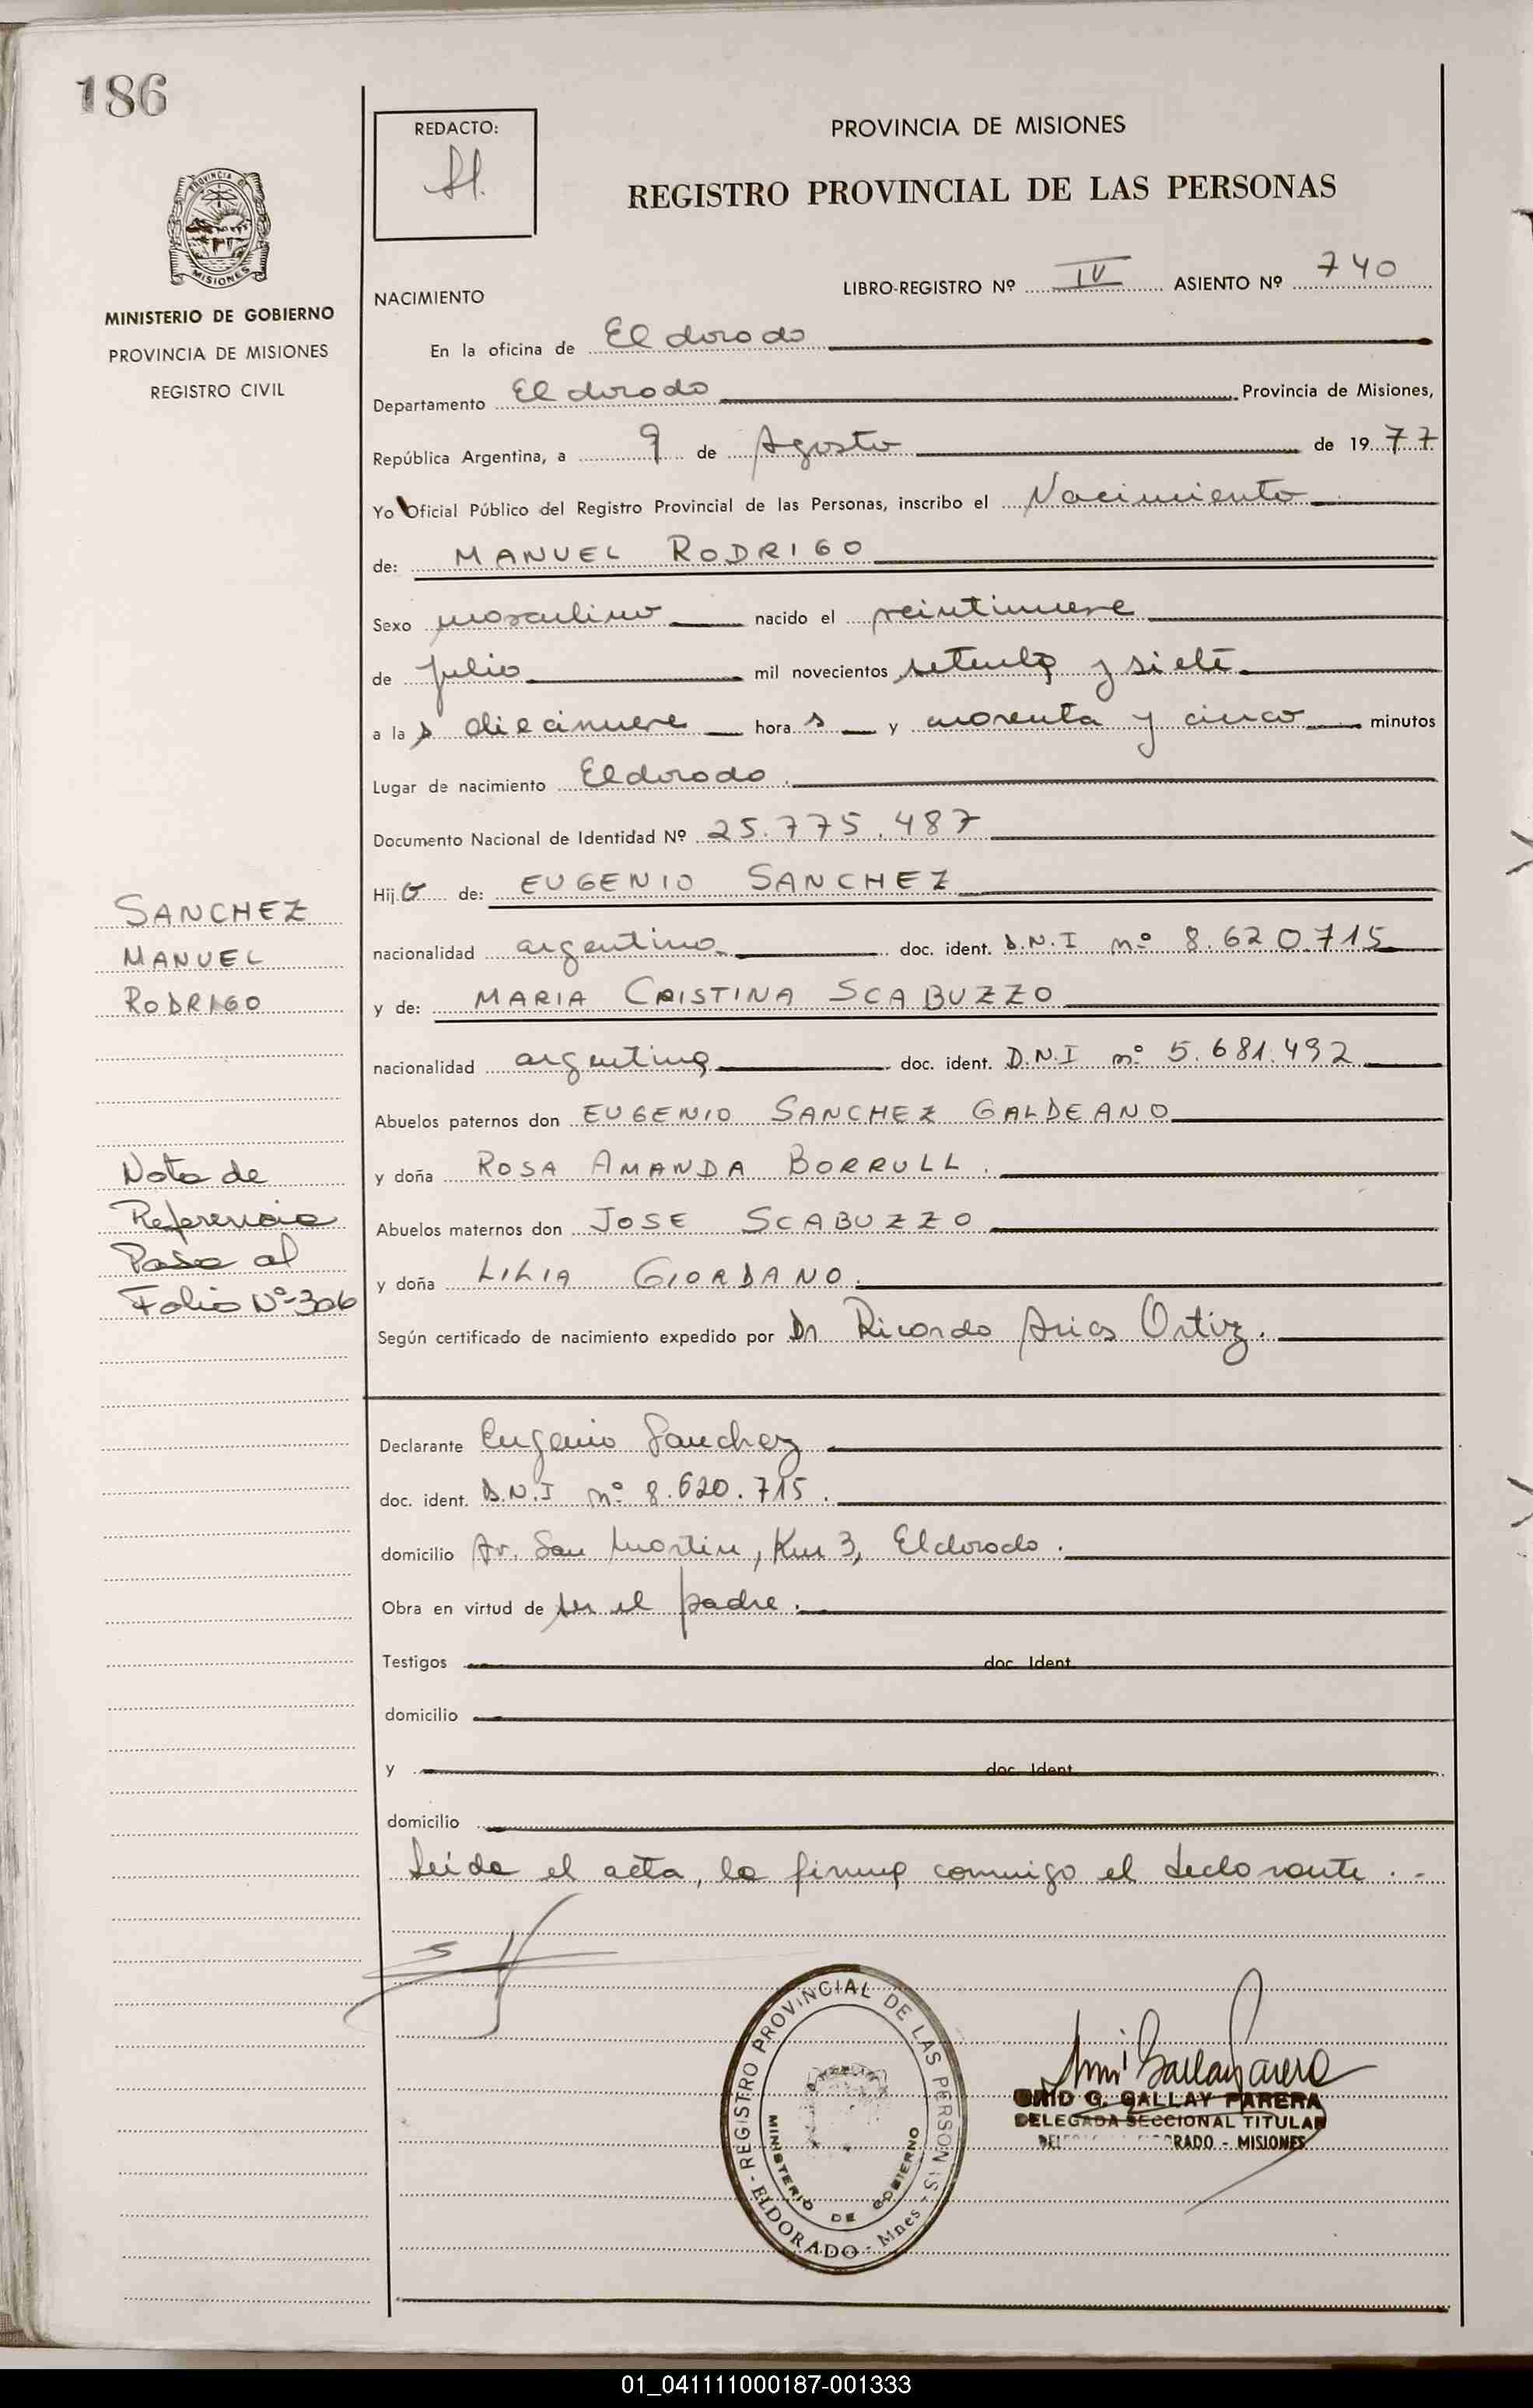 186
REDACTO:
PROVINCIA DE MISIONES
REGISTRO PROVINCIAL DE LAS PERSONAS
PROVINCIA DE
MISIONES
MINISTERIO DE GOBIERNO
PROVINCIA DE MISIONES
REGISTRO CIVIL
LIBRO-REGISTRO Nº IV ASIENTO Nº 740
NACIMIENTO
En la oficina de Eldorado
Departamento Eldorado Provincia de Misiones,
República Argentina, a 9 de Agosto de 1977
Yo Oficial Público del Registro Provincial de las Personas, inscribo el Nacimiento
de: MANUEL RODRIGO
Sexo masculino nacido el veintinueve
de julio mil novecientos setenta y siete
a las diecinueve horas y cuarenta y cinco minutos
Lugar de nacimiento Eldorado.
Documento Nacional de Identidad Nº 25.775.487
Hijo de: EUGENIO SANCHEZ
nacionalidad argentino doc. ident. D.N.I nº 8.620.715
y de: MARIA CRISTINA SCABUZZO
nacionalidad argentina doc. ident. D.N.I nº 5.681.492
Abuelos paternos don EUGENIO SANCHEZ GALDEANO
y doña ROSA AMANDA BORRULL.
Abuelos maternos don JOSE SCABUZZO
y doña LILIA GIORDANO.
Según certificado de nacimiento expedido por Dr Ricardo Arias Ortiz.
SANCHEZ
MANUEL
RODRIGO
Nota de
Referencia
Pasa al
Folio Nº-306
Declarante Eugenio Sanchez
doc. ident. D.N.I nº 8.620.715.
domicilio Av. San Martin, Km 3, Eldorado.
Obra en virtud de ser el padre.
Testigos doc. Ident.
domicilio
y doc. Ident.
domicilio
Leída el acta, la firma conmigo el declarante.-
REGISTRO PROVINCIAL DE LAS PERSONAS
- ELDORADO - Mnes -
MINISTERIO DE GOBIERNO
G. GALLAY PARERA
DELEGADA SECCIONAL TITULAR
RADO - MISIONES
01_041111000187-001333